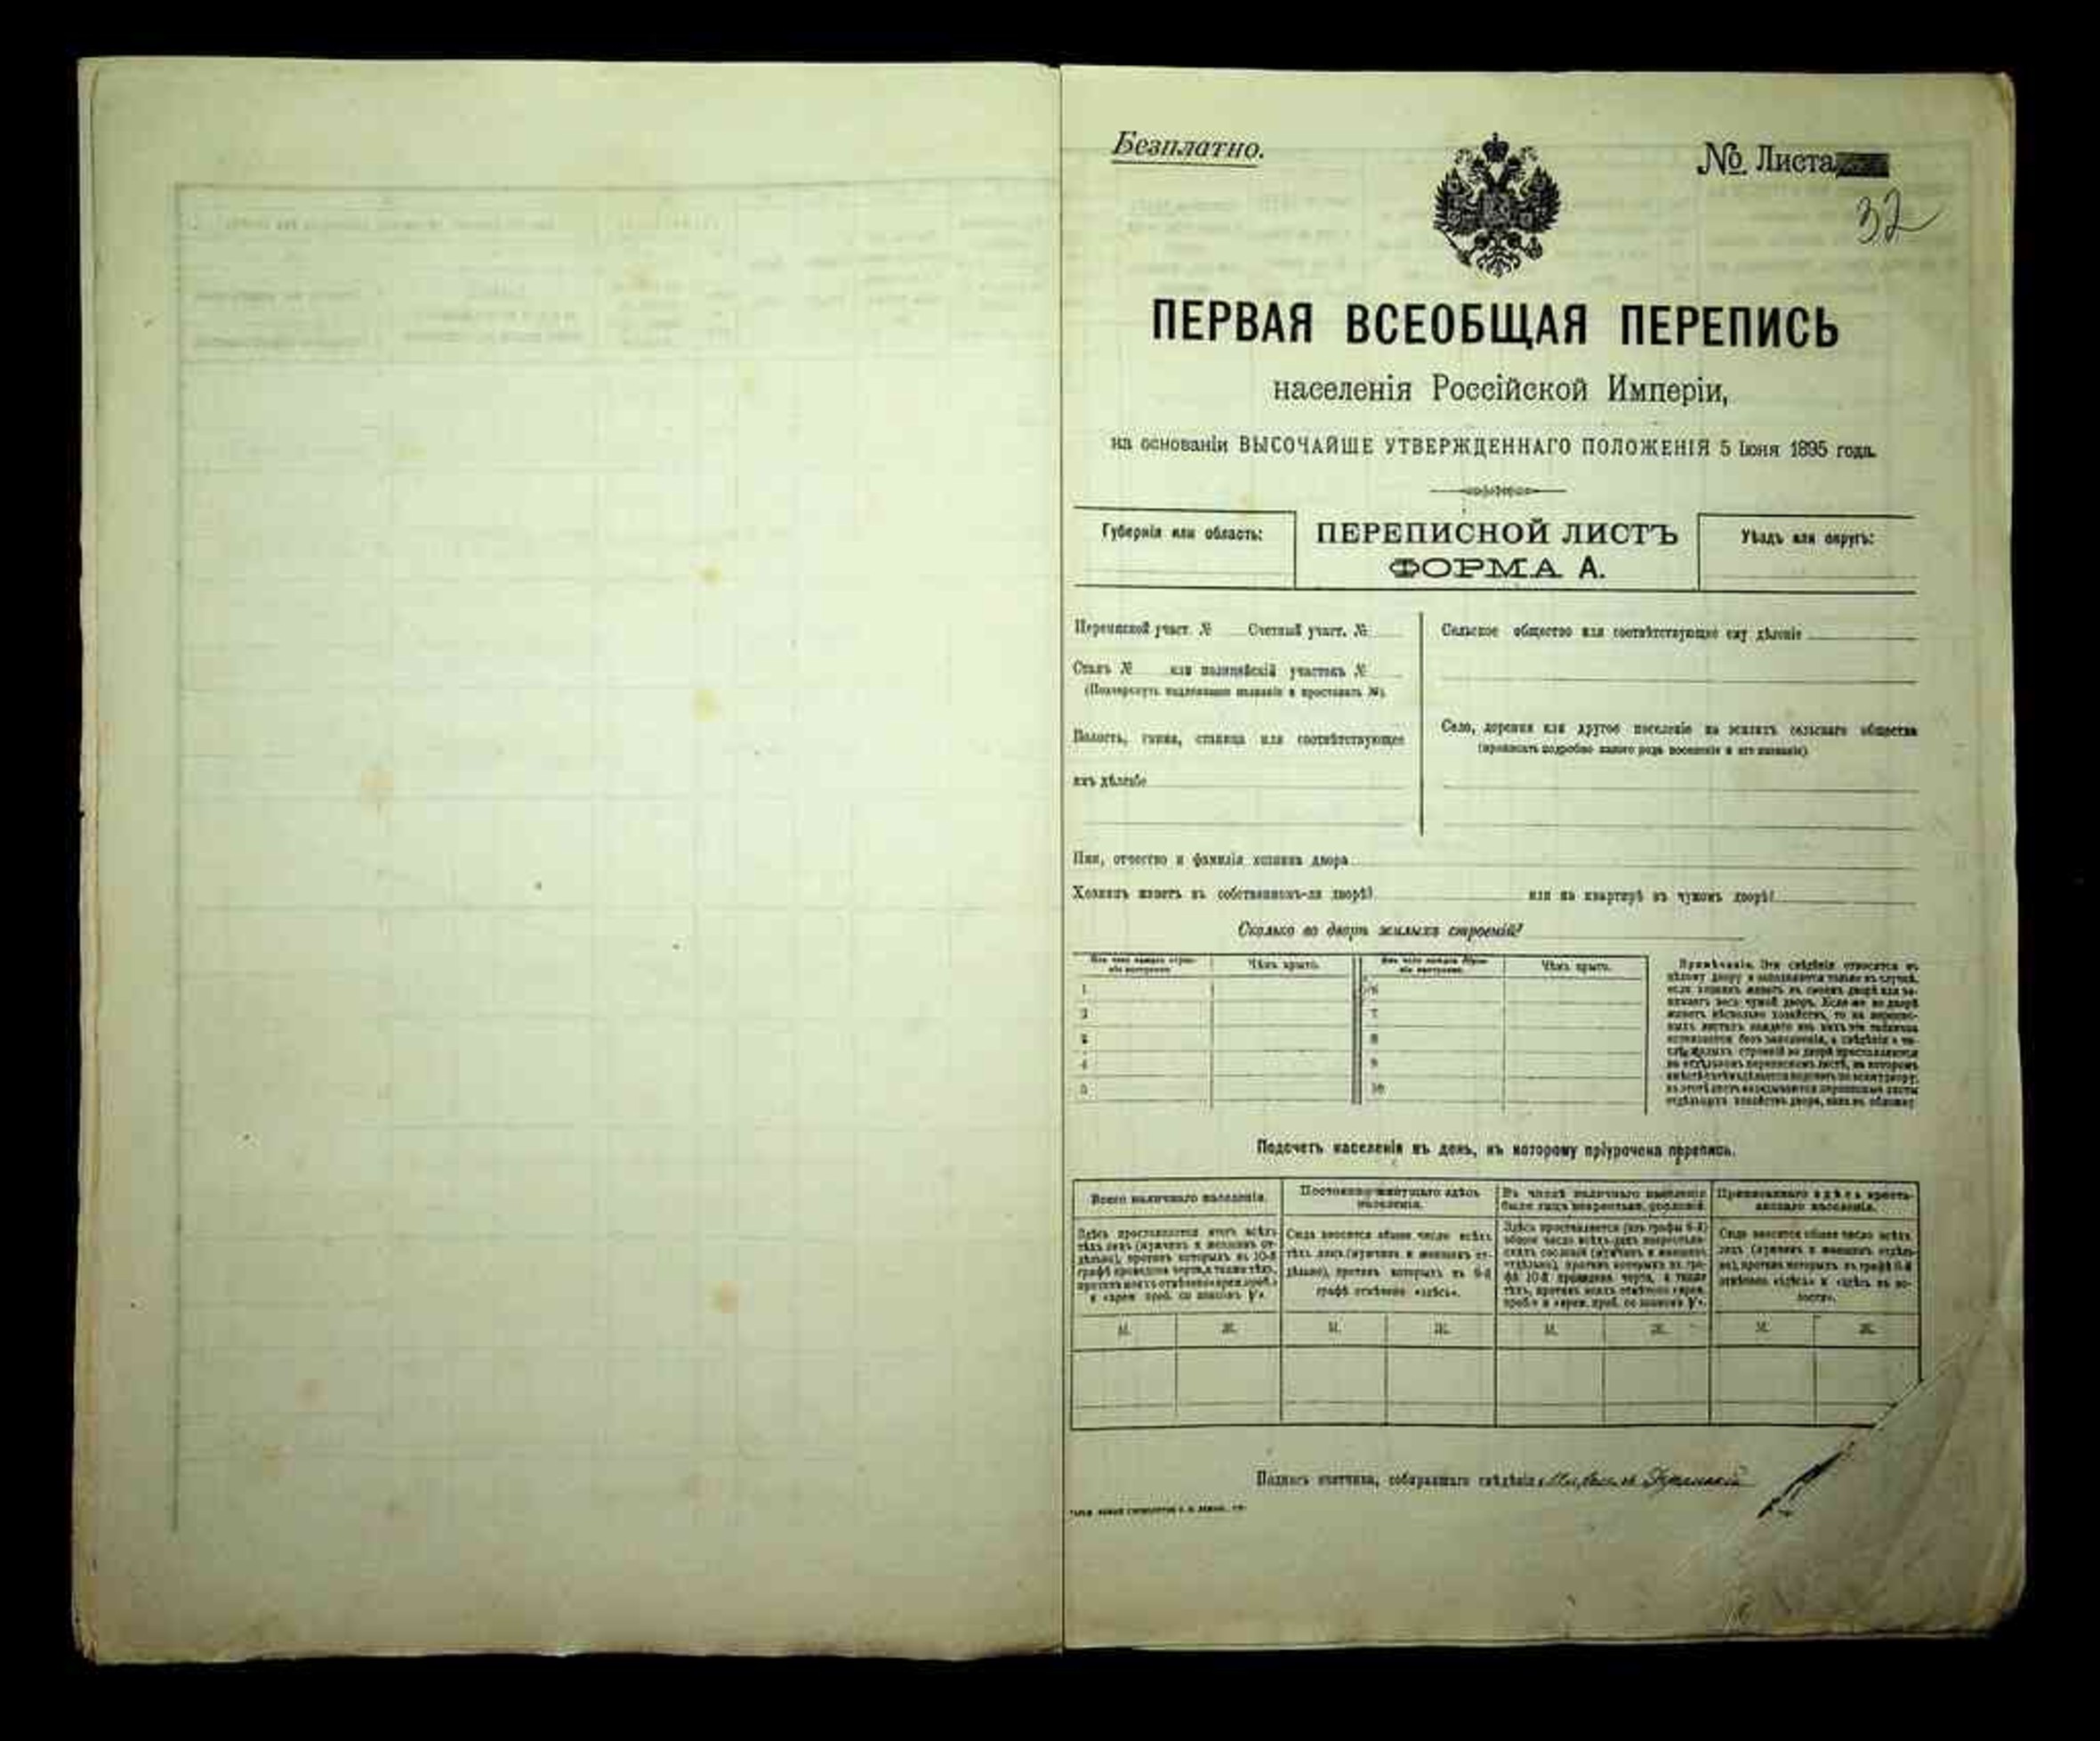 Безплатно.
№ Листа
32
ПЕРВАЯ ВСЕОБЩАЯ ПЕРЕПИСЬ
населенія Россійской Имперіи,
на основаніи ВЫСОЧАЙШЕ УТВЕРЖДЕННАГО ПОЛОЖЕНІЯ 5 Іюня 1895 года.
Губернія или область:
ПЕРЕПИСНОЙ ЛИСТЪ
ФОРМА А.
Уѣздъ или округъ:
Переписной участ. № Счетный участ. №
Станъ № или полицейскій участокъ №
(Подчеркнуть надлежащее названіе и проставить №).
Волость, гмина, станица или соотвѣтствующее
имъ дѣленіе
Сельское общество или соотвѣтствующее ему дѣленіе
Село, деревня или другое поселеніе на земляхъ сельскаго общества
(прописать подробно какого рода поселеніе и его названіе)
Имя, отчество и фамилія хозяина двора
Хозяинъ живетъ въ собственномъ-ли дворѣ? или на квартирѣ въ чужомъ дворѣ?
Сколько во дворѣ жилыхъ строеній?
Изъ чего каждое строеніе построено. Чѣмъ крыто. Изъ чего каждое строеніе построено. Чѣмъ крыто.
1 6
2 7
3 8
4 9
5 10
Примѣчаніе. Эти свѣдѣнія относятся къ
цѣлому двору и заполняются только въ случаѣ,
если хозяинъ живетъ въ своемъ дворѣ или за-
нимаетъ весь чужой дворъ. Если-же во дворѣ
живетъ нѣсколько хозяйствъ, то на перепис-
ныхъ листахъ каждаго изъ нихъ эта табличка
оставляется безъ заполненія, а свѣдѣнія о чи-
слѣ жилыхъ строеній во дворѣ проставляются
на отдѣльномъ переписномъ листѣ, на которомъ
отдѣльныхъ хозяйствъ двора, какъ въ обложку
Подсчетъ населенія въ день, къ которому пріурочена перепись.
Всего наличнаго населенія.
Здѣсь проставляется итогъ всѣхъ
тѣхъ лицъ (мужчинъ и женщинъ от-
дѣльно), противъ которыхъ въ 10-й
графѣ проведена черта, а также тѣхъ,
противъ коихъ отмѣчено «врем. проб.»
и «врем. проб. со знакомъ V».
Постоянно живущаго здѣсь
населенія.
Сюда вносится общее число всѣхъ
тѣхъ лицъ (мужчинъ и женщинъ от-
дѣльно), противъ которыхъ въ 8-й
графѣ отмѣчено «здѣсь».
Въ числѣ наличнаго населенія
было лицъ некрестьян. сословій.
Здѣсь проставляется (изъ графы 6-й)
общее число всѣхъ лицъ некрестьян-
скихъ сословій (мужчинъ и женщинъ
отдѣльно), противъ которыхъ въ гра-
фѣ 10-й проведена черта, а также
тѣхъ, противъ коихъ отмѣчено «врем.
проб.» и «врем. проб. со знакомъ V».
Приписаннаго здѣсь кресть-
янскаго населенія.
Сюда вносится общее число всѣхъ
лицъ (мужчинъ и женщинъ отдѣль-
но), противъ которыхъ въ графѣ
отмѣчено «здѣсь» и «здѣсь въ во-
лости».
М. Ж. М. Ж. М. Ж. М. Ж.
Подпись счетчика, собиравшаго свѣдѣнія